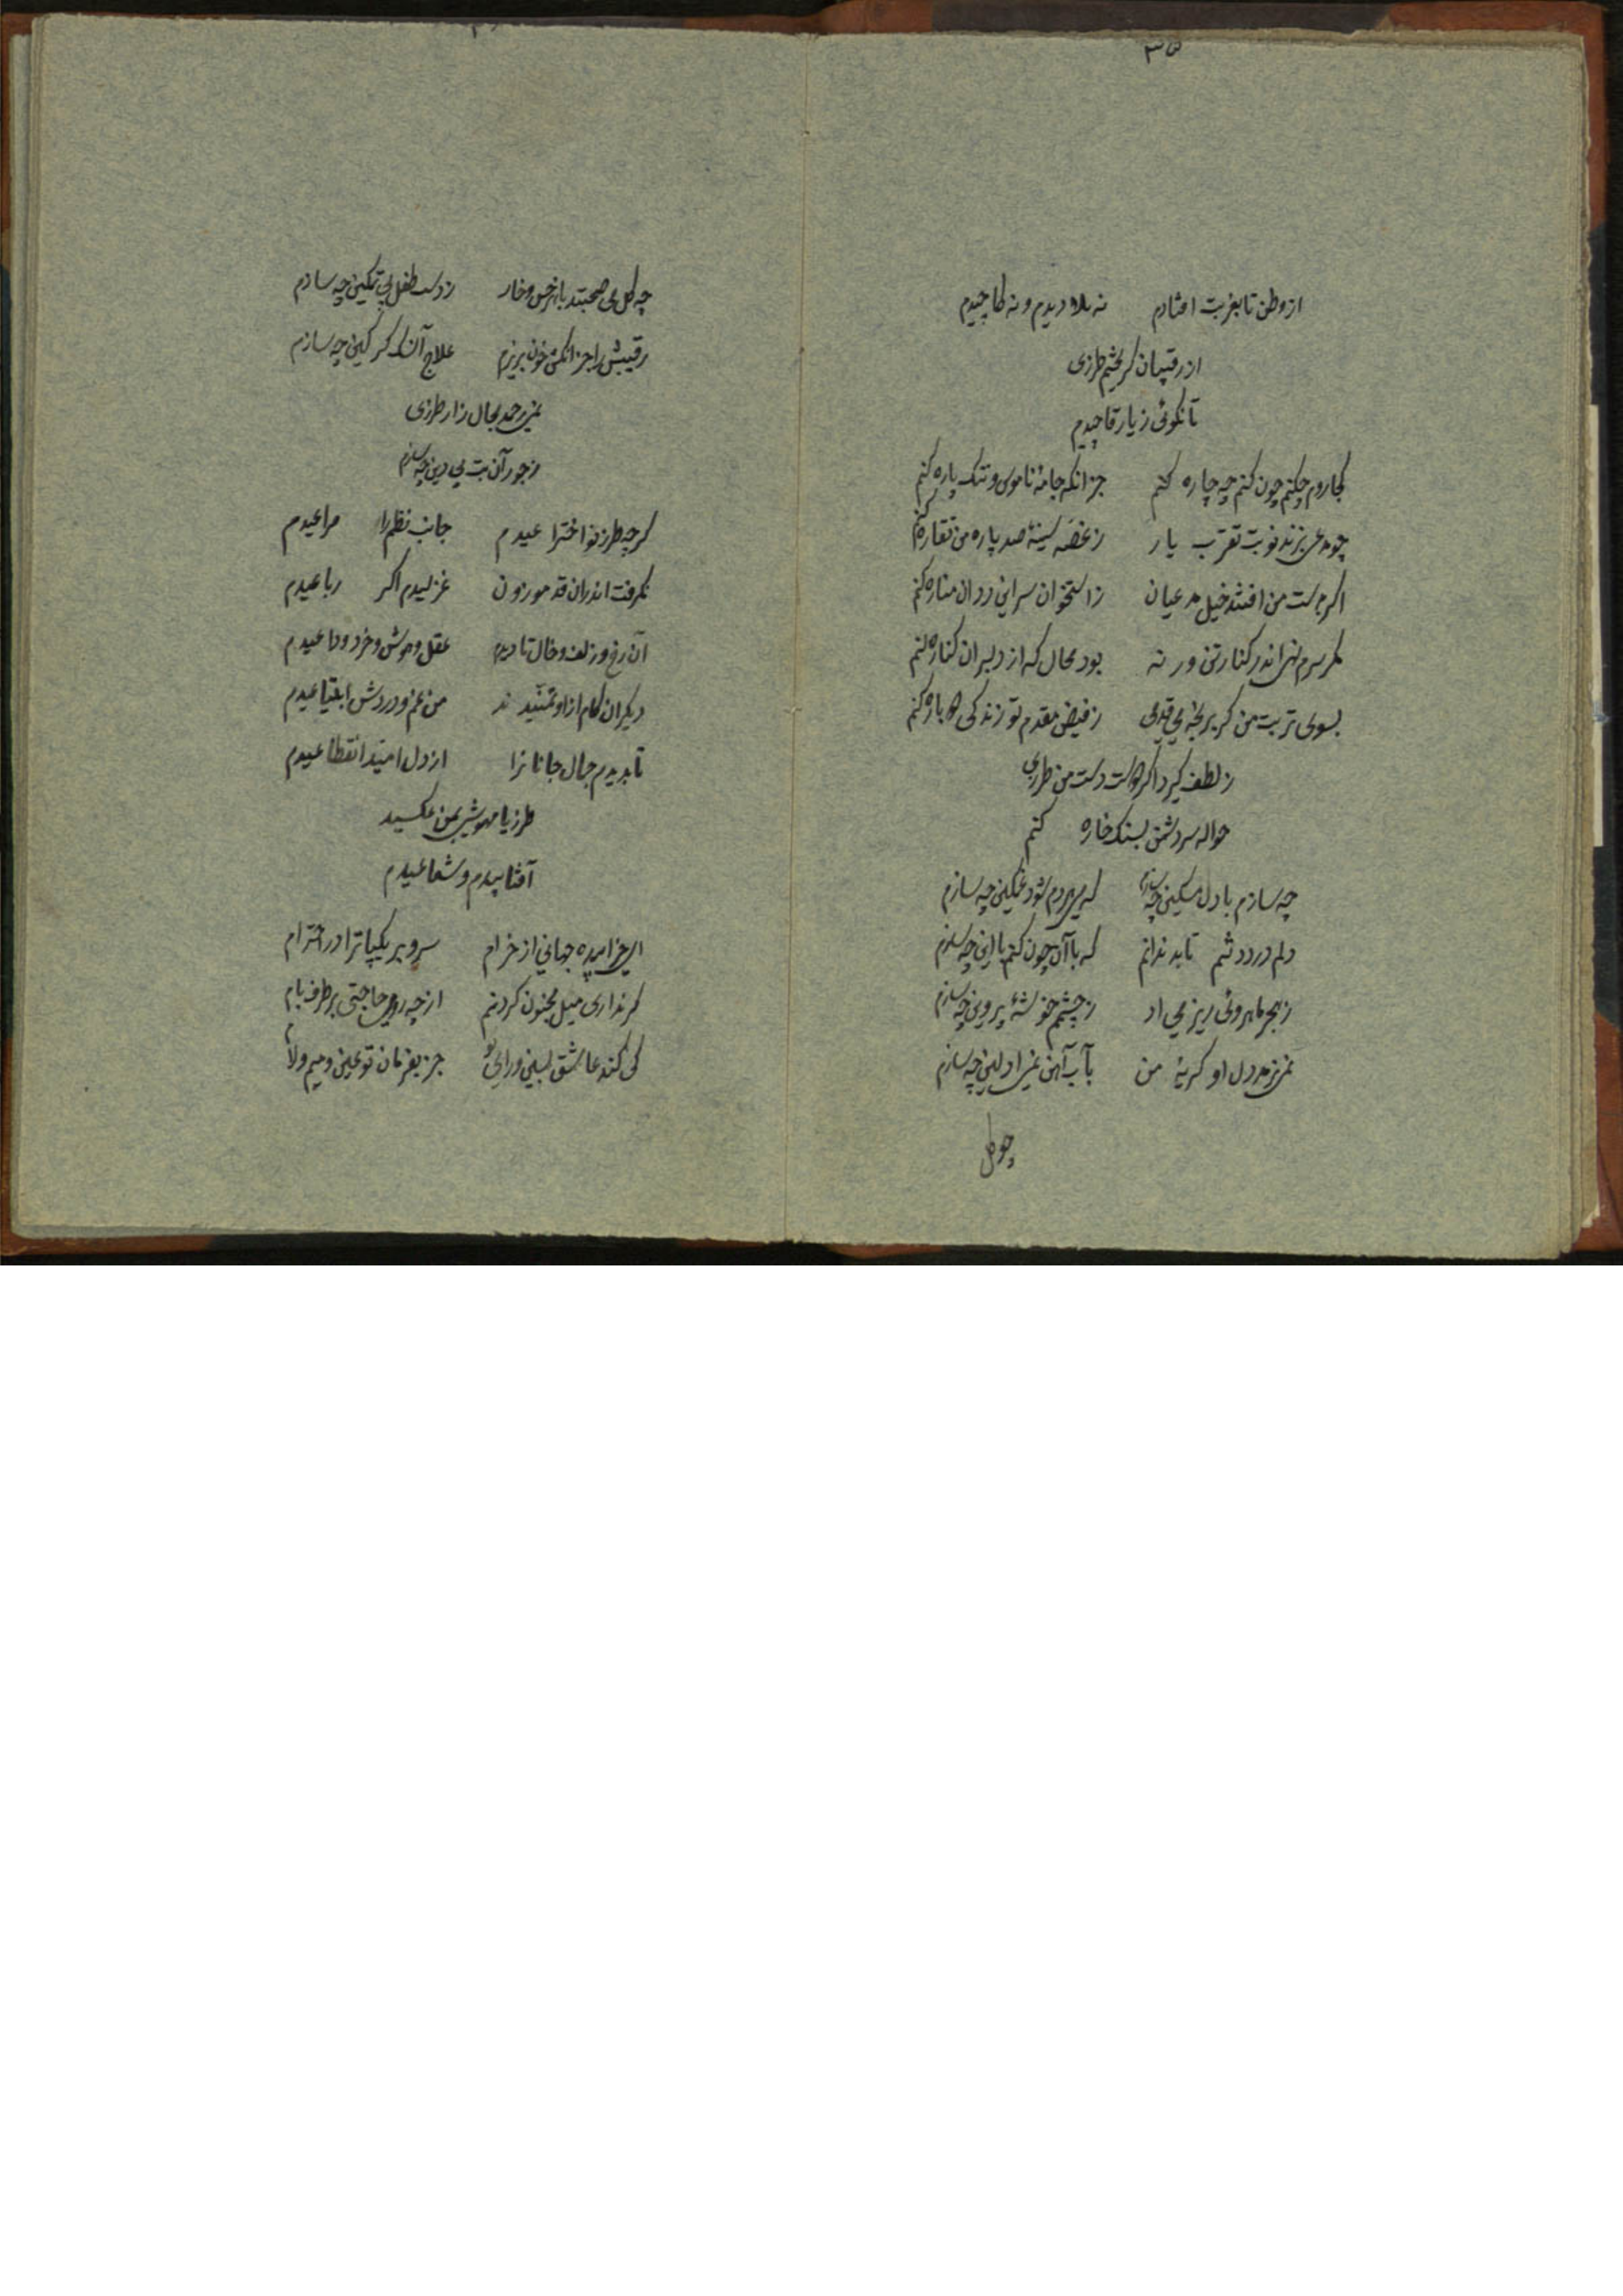 ۳۵
از وطن تا بغربت افتادم نه پلا دیدم و نه کاچیدم
از رقیبان گریختم طرزی
تا نگوئی ز یار قاچیدم
کجا روم چکنم چون کنم چه چاره کنم جز انکه جامهٔ ناموس و ننک پاره کنم
چو مدعی بزند نوبت تقرب یار ز غصه سینهٔ صد پاره من نقاره کنم
اکر بدست من افتند خیل مدعیان ز استخوان سر اینی ددان مناره کنم
مکر سرم نهی اندر کنارتن ور نه بود محال که از دلبران کناره کنم
بسوی تربت من کر برنجه یی قدمی ز فیض مقدم تو زندکی دوباره کنم
ز لطف کیرد اکر دوست دست من طرزی
حواله سر دشمن بسنک خاره کنم
چه سازم با دل مسکین چه سازم که هر دم شود غمکین چه سازم
دلم درد دشم تابد ندانم که با آن چون کنم با این چه سازم
ز هجر ماهروئی ریز می اد ز چشم خوشهٔ پروین چه سازم
نمی نرمد دل او کریهٔ من بآب آهن نمی ادلین چه سازم
چو کل
چه کل می صحبتد با هر خس و خار ز دست طفل بی تمکین چه سازم
رقیبش را جز انکش خون بریزم علاج آن سک کرکین چه سازم
نمی رحمد بحال زار طرزی
ز جور آن بت بی دین چه سازم
کرچه طرز نو اختراعیدم جانب نظم را مراعیدم
نکرفت اندران قد موزون غزلیدم اکر رباعیدم
آن رخ و زلف و خال تا دیدم عقل و هوش و خرد وداعیدم
دیکران کام از او تمتیدند من غم و دردش ابتیاعیدم
تا بدیدم جمال جانانرا از دل امید انقطاعیدم
طرزیا مهوشی بمن عکسید
آفتابیدم و شعاعیدم
ای خرامیده جهانی از خرام سرو بر یکپا ترا در احترام
کر نداری میل مجنون کردنم از چه رو می حاجتی بر طرف بام
کی کند عاشق بسین و رای تو جز بفرمان تو عین و میم و لام